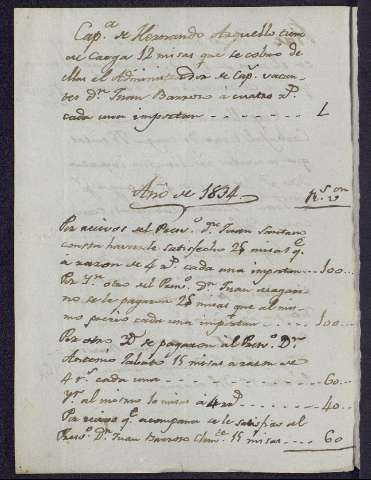 Cap.ª de Hernando Arguello tiene
de Carga 12 misas que se cobro de
ellas el Administrador de Cap.s vacan-
tes D.n Juan Barroso á cuatro r.s
cada una importan
Año de 1834. R.s von
Por recivos del Presv.º D.n Juan
consta haverse satisfecho 25 misas q.e
a razon de 4 r.s cada una importan ... 100 ...
Por Yd. otro del Presv.º D.n Juan
no se le pagaron 25 misas que al mis-
mo precio cada una importan ... 100 ...
Por otro Yd. se pagaron al Presv.º D.n
Antonio 15 misas a razon de
4 r.s cada una ... 60 ...
Yd. al mismo 10 misas á 4 r.s ... 40 ...
Por recivo q.e acompaña se le satisfizo al
Presv.º D.n Juan Barroso 15 misas ... 60